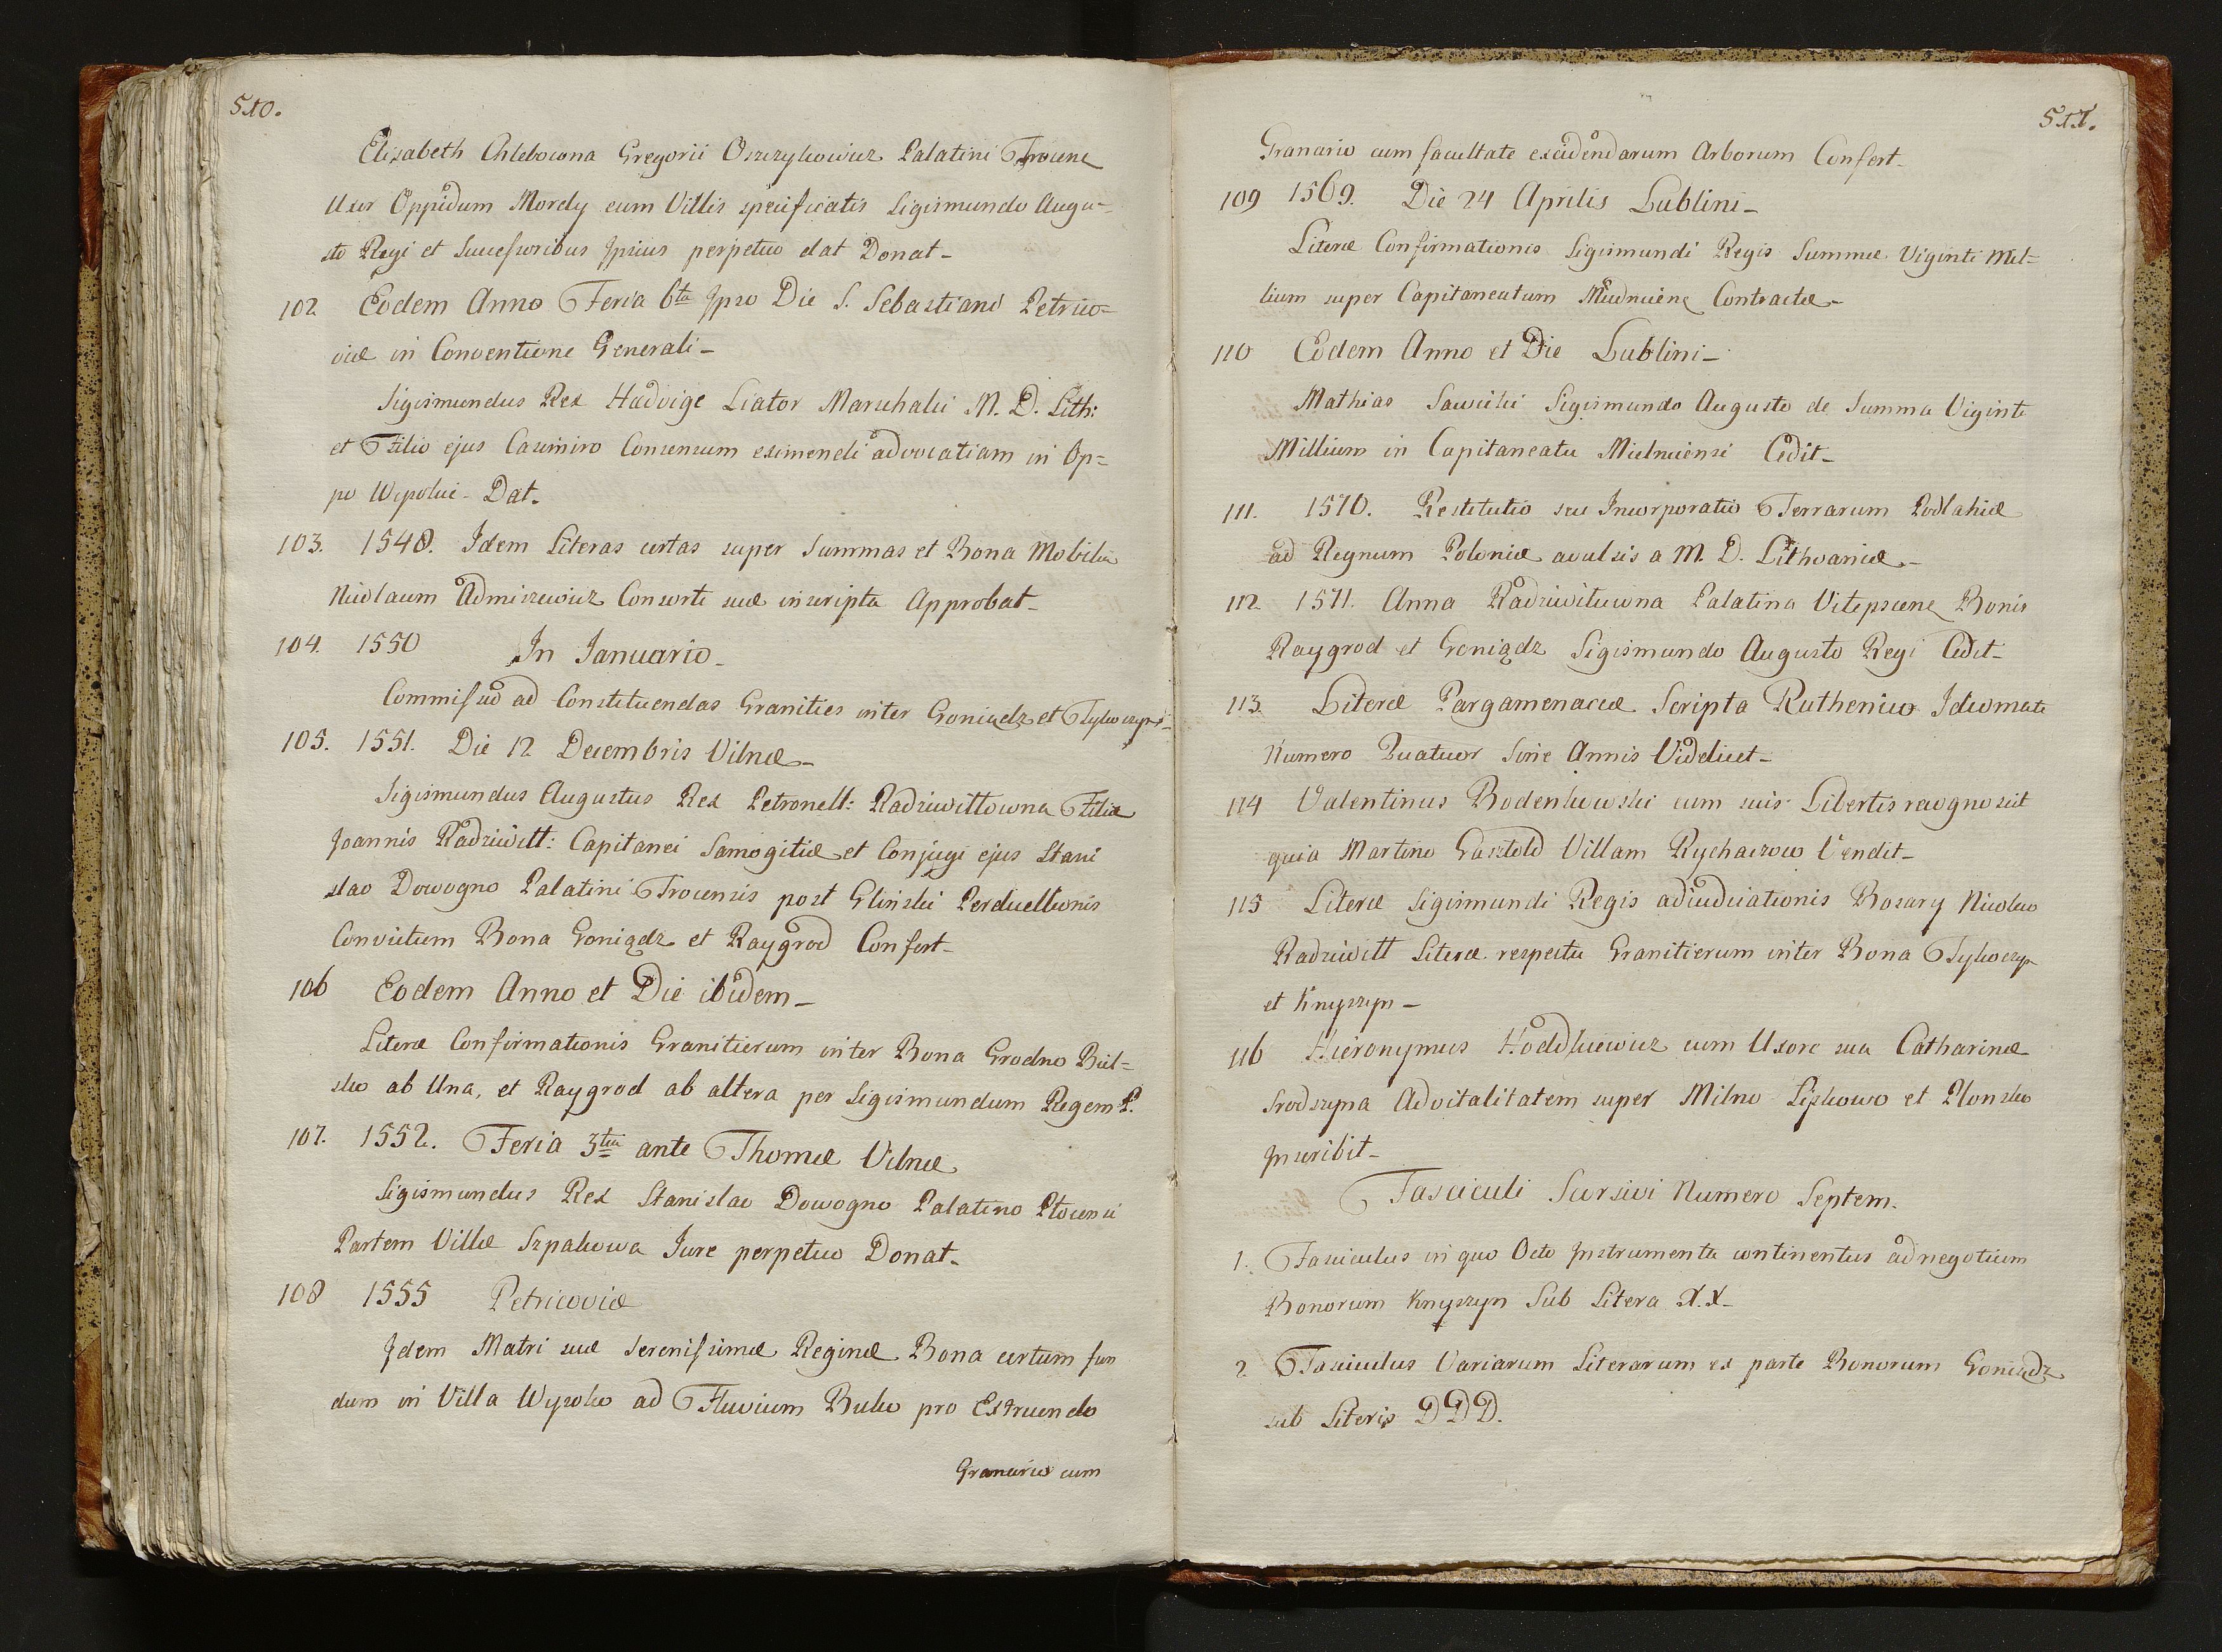 510.
Elisabeth Chlebowna Gregorii Oszczykowicz Palatini Trocens
Uxor Oppidum Mordy cum Villis specificatis Sigismundo Augu=
sto Regi et Successoribus Ipsius perpetuo dat Donat_
102 Eodem Anno Feria 6ta Ipso Die S. Sebastiani Petrico=
viæ in Conventione Generali_
Sigismundus Rex Hadvige Liator Marschalci M. D. Lith:
et Filio ejus Casimiro Consensum eximendi advocatiam in Op=
po Wysokie Dat.
103. 1548. Idem Literas certas super Summas et Bona Mobilia
Nicolaum Admiszewicz Consorti suæ inscripta Approbat_
104. 1550 In Januario_
Commissio ad Constituendas Granities inter Goniądz et Tykoczyn_
105. 1551. Die 12 Decembris Vilnæ_
Sigismundus Augustus Rex Petronell: Radziwiłłowna Filiæ
Joannis Radziwiłł: Capitanei Samogitiæ et Conjugi ejus Stani
slao Dowogno Palatini Trocensis post Glinski Perduellionis
Convictum Bona Goniądz et Raygrod Confert_
106 Eodem Anno et Die ibidem_
Literæ Confirmationis Granitierum inter Bona Grodno Biel=
sko ab Una, et Raygrod ab altera per Sigismundum Regem P.
107. 1552. Feria 3tia ante Thomæ Vilnæ
Sigismundus Rex Stanislao Dowogno Palatino Płocensi
Partem Villæ Szpakowa Jure perpetuo Donat_
108 1555 Petricoviæ
Idem Matri suæ Serenissimæ Reginæ Bona certum fun
dum in Villa Wysoko ad Fluvium Buko pro Extruendo
Granario cum
511.
Granario cum facultate excidendarum Arborum Confert_
109 1569. Die 24 Aprilis Lublini_
Literæ Confirmationis Sigismundi Regis Summæ Viginti Mil=
lium super Capitaneatum Mielnicens Contractæ_
110 Eodem Anno et Die Lublini_
Mathias Sawicki Sigismundo Augusto de Summa Viginti
Millium in Capitaneatu Mielnicensi Cedit_
111. 1570. Restitutio seu Incorporatio Terrarum Podlahiæ
ad Regnum Poloniæ avulsis a M. D. Lithvaniæ_
112. 1571. Anna Radziwiłłowna Palatina Vitepscens Bonis
Raygrod et Goniądz Sigismundo Augusto Regi Cedit_
113. Literæ Pargamenaceæ Scripta Ruthenico Idiomate
Numero Quatuor Sine Annis Videlicet_
114 Valentinus Bodenkowski cum suis Libertis recognoscit
quia Martino Gasztold Villam Rychaczow Vendit_
115 Literæ Sigismundi Regis adiudicationis Bosary Nicolao
Radziwiłł Literæ respectu Granitierum inter Bona Tykoczyn
et Knyszyn_
116 Hieronymus Hodkiewicz cum Uxore sua Catharinæ
Srodszyna Advitalitatem super Milno Lipkowo et Plonsko
Inscribit_
Fasciculi Scorsivi Numero Septem.
1. Fasciculus in quo Octo Instrumenta continentus ad negotium
Bonorum Knyszyn Sub Litera X.X_
2. Fasciculus Variarum Literarum ex parte Bonorum Goniądz
sub Literis DDD.